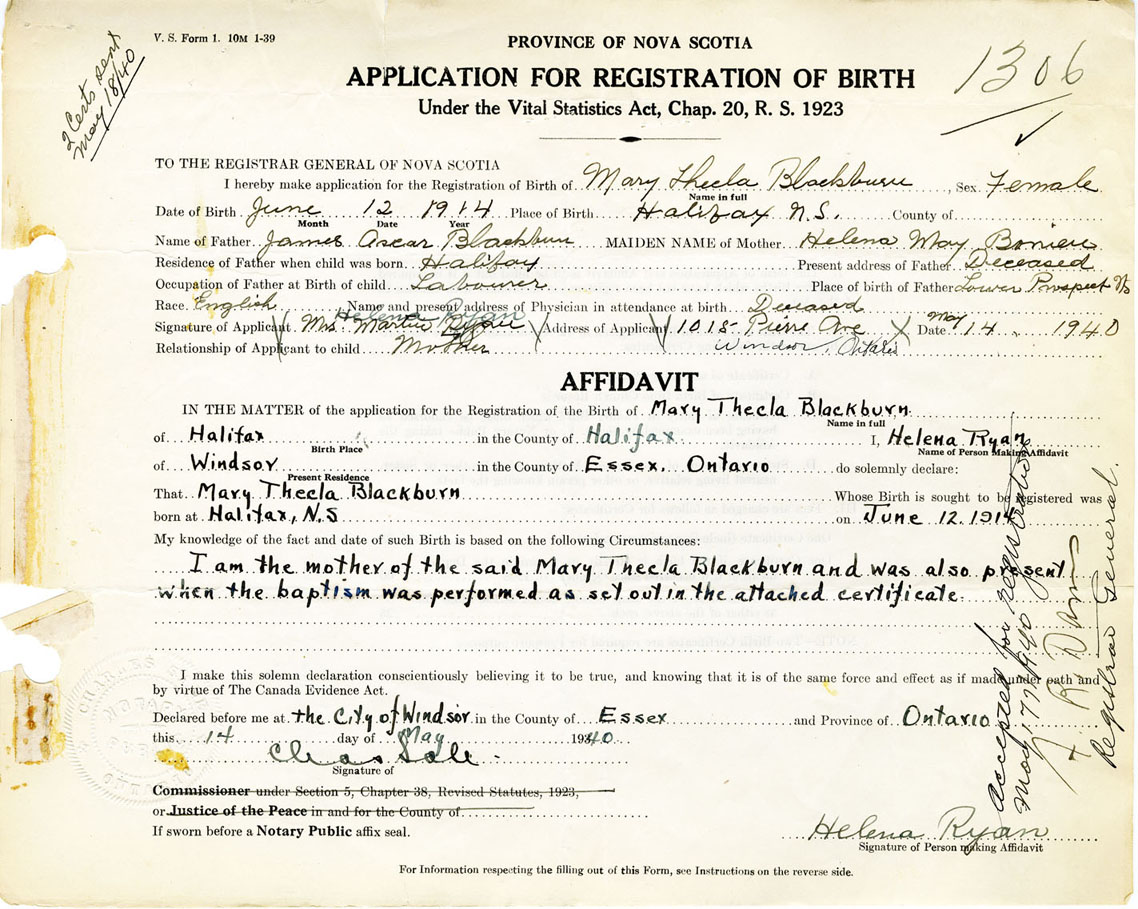 V. S. Form 1. 10M 1-39
2 Certs sent
May 18/40
PROVINCE OF NOVA SCOTIA
APPLICATION FOR REGISTRATION OF BIRTH
Under the Vital Statistics Act, Chap. 20, R. S. 1923
1306
TO THE REGISTRAR GENERAL OF NOVA SCOTIA
I hereby make application for the Registration of Birth of Mary Thecla Blackburn, Sex Female
Name in full
Date of Birth June 12 1914 Place of Birth Halifax N.S. County of
Month Date Year
Name of Father James Oscar Blackburn MAIDEN NAME of Mother Helena May
Residence of Father when child was born Halifax Present address of Father Deceased
Occupation of Father at Birth of child Labourer Place of birth of Father Lower Prospect NS
Race English Name and present address of Physician in attendance at birth Deceased
Helena Ryan
Signature of Applicant Mrs. Martin Ryan Address of Applicant 1015 Pierre Ave Date May 14 1940
Relationship of Applicant to child Mother Windsor, Ontario
AFFIDAVIT
IN THE MATTER of the application for the Registration of the Birth of Mary Thecla Blackburn
Name in full
of Halifax in the County of Halifax I, Helena Ryan
Birth Place Name of Person Making Affidavit
of Windsor in the County of Essex, Ontario do solemnly declare:
Present Residence
That Mary Thecla Blackburn Whose Birth is sought to be registered was
born at Halifax, N.S on June 12, 1914
My knowledge of the fact and date of such Birth is based on the following Circumstances:
I am the mother of the said Mary Thecla Blackburn and was also present
when the baptism was performed as set out in the attached certificate.
I make this solemn declaration conscientiously believing it to be true, and knowing that it is of the same force and effect as if made under oath and
by virtue of The Canada Evidence Act.
Declared before me at the City of Windsor in the County of Essex and Province of Ontario
this 14 day of May 1940
Chas Sale
Signature of
Commissioner under Section 5, Chapter 38, Revised Statutes, 1923,
or Justice of the Peace in and for the County of
If sworn before a Notary Public affix seal.
Helena Ryan
Signature of Person making Affidavit
For Information respecting the filling out of this Form, see Instructions on the reverse side.
Accepted for registration
May 17 1940
Registrar General.